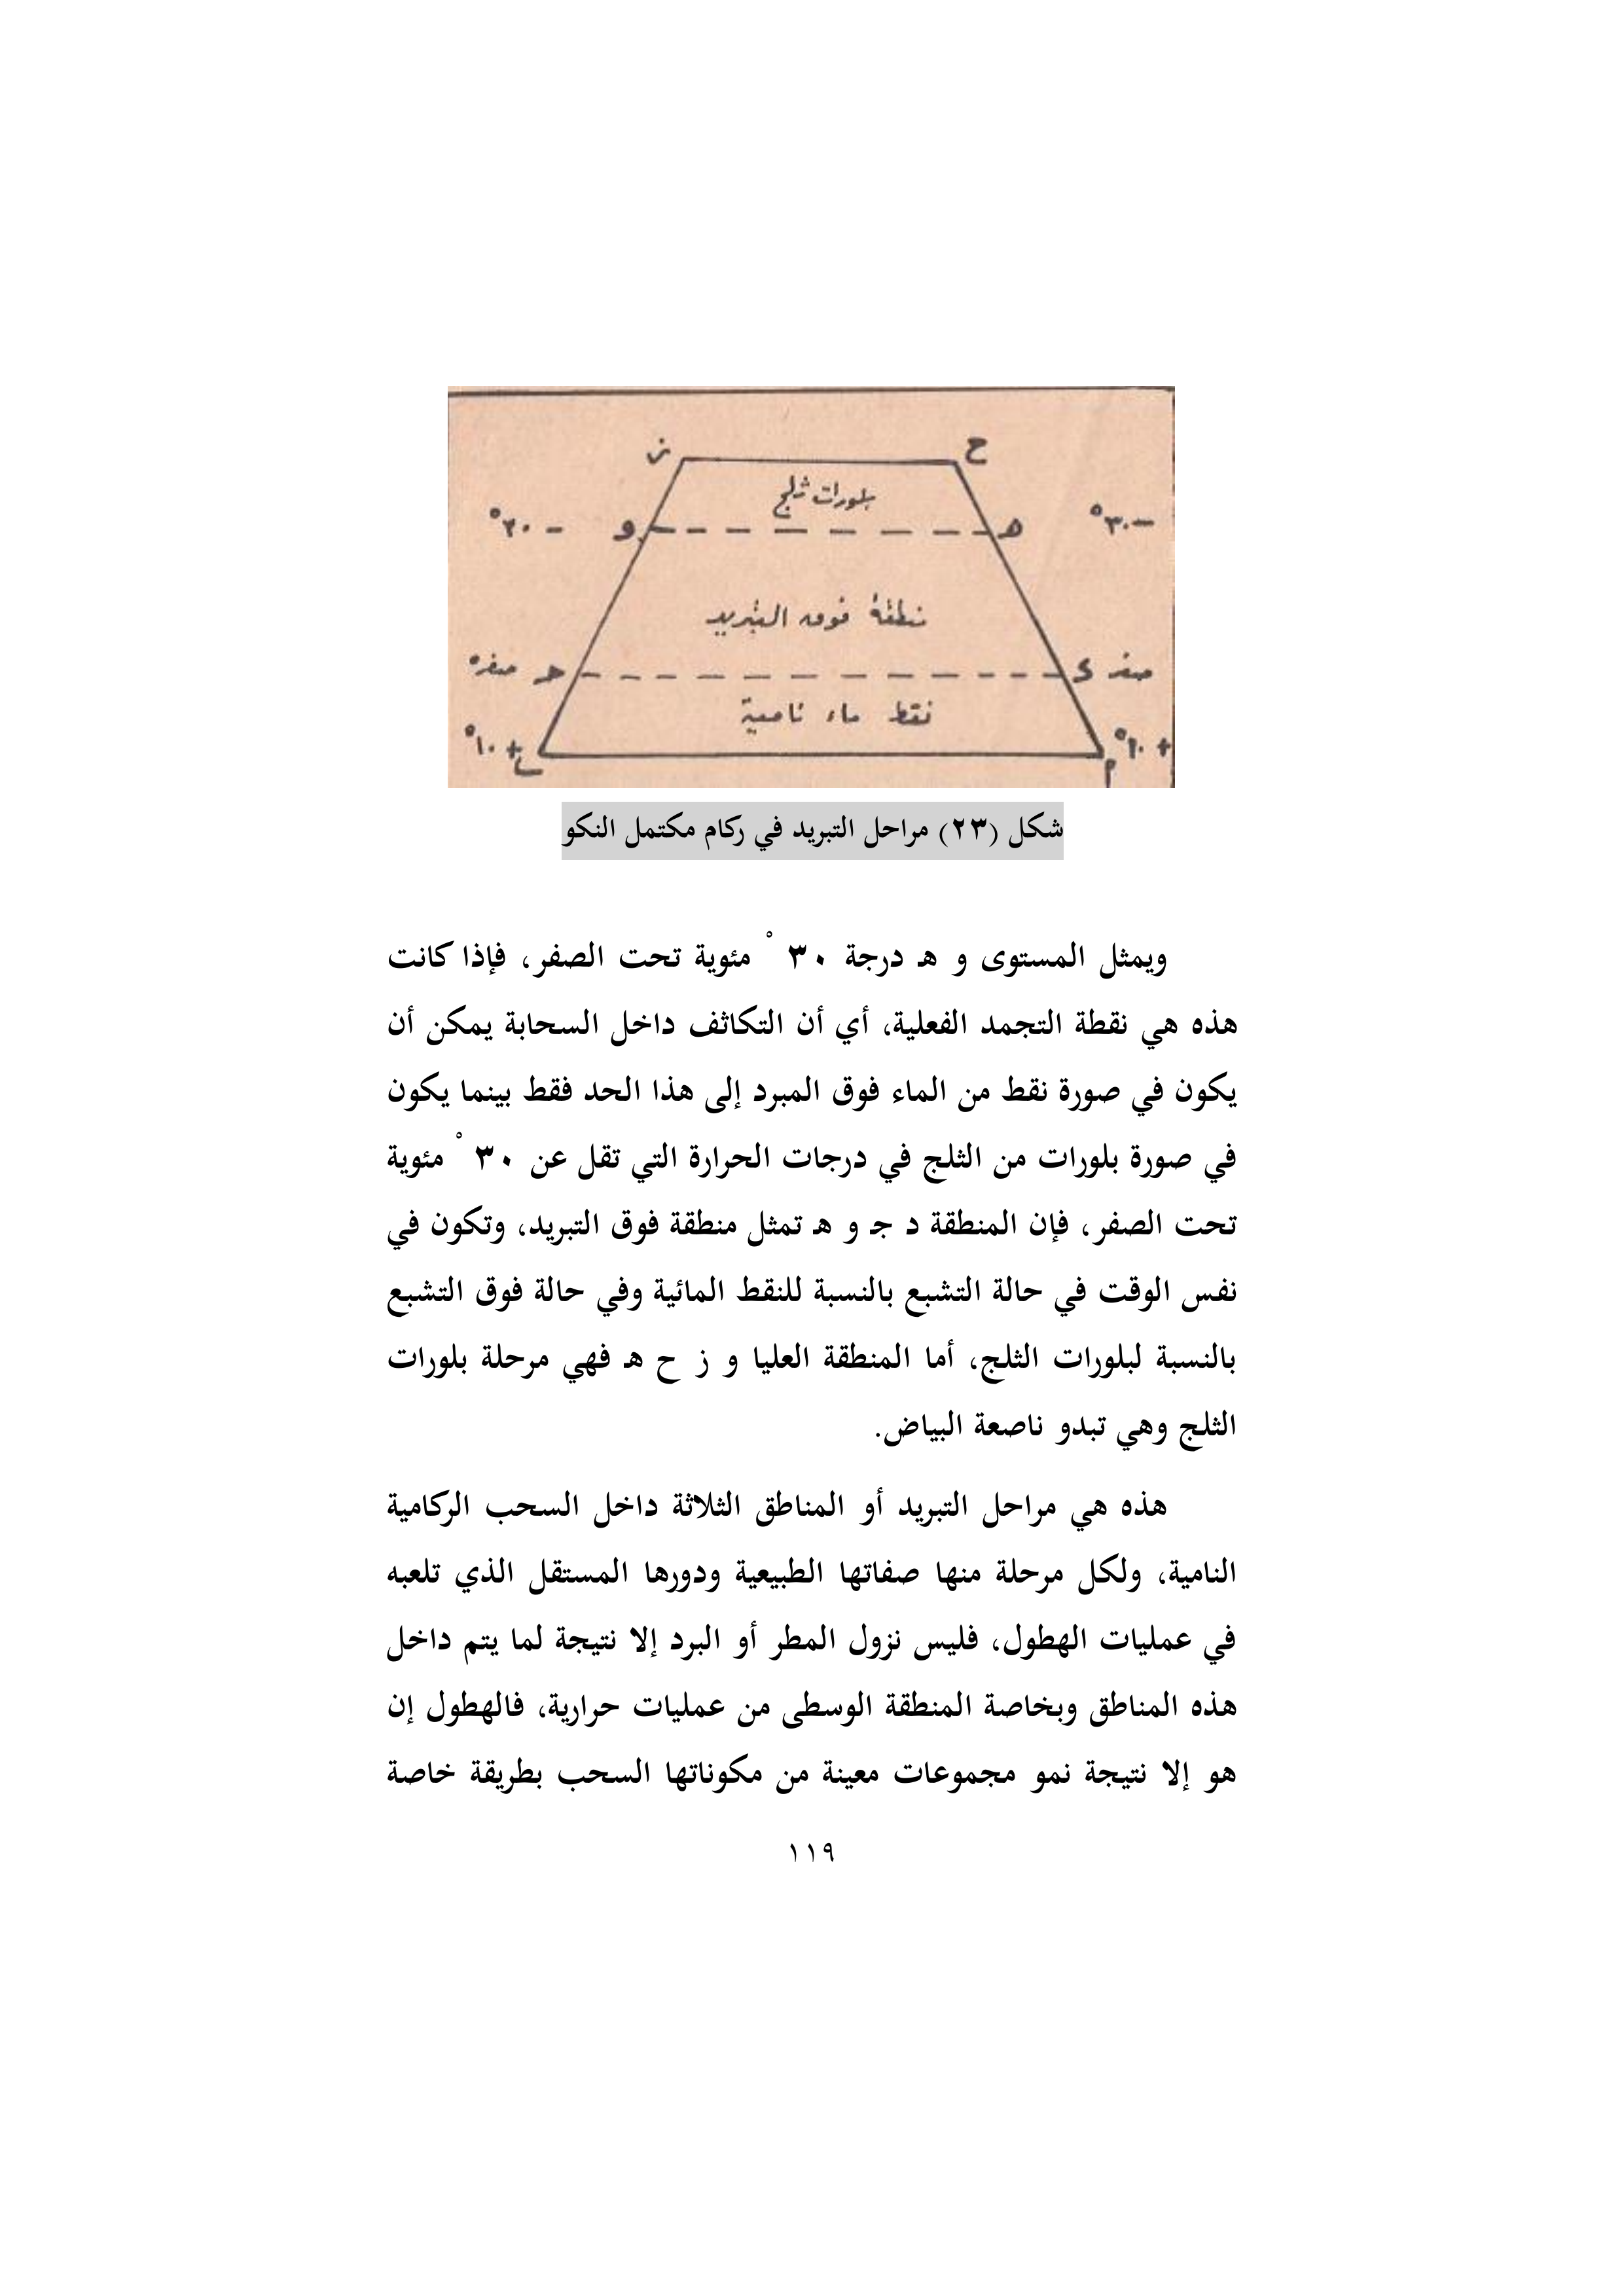 ز ح
بلورات ثلج
-٣٠° و هـ -٣٠°
منطقة فوق التبريد
صفر° جـ د صفر
نقط ماء نامية
+١٠° +١٠°
شكل (٢٣) مراحل التبريد في ركام مكتمل النكو
ويمثل المستوى و هـ درجة ٣٠ ْ مئوية تحت الصفر، فإذا كانت
هذه هي نقطة التجمد الفعلية، أي أن التكاثف داخل السحابة يمكن أن
يكون في صورة نقط من الماء فوق المبرد إلى هذا الحد فقط بينما يكون
في صورة بلورات من الثلج في درجات الحرارة التي تقل عن ٣٠ ْ مئوية
تحت الصفر، فإن المنطقة د جـ و هـ تمثل منطقة فوق التبريد، وتكون في
نفس الوقت في حالة التشبع بالنسبة للنقط المائية وفي حالة فوق التشبع
بالنسبة لبلورات الثلج، أما المنطقة العليا و ز ح هـ فهي مرحلة بلورات
الثلج وهي تبدو ناصعة البياض.
هذه هي مراحل التبريد أو المناطق الثلاثة داخل السحب الركامية
النامية، ولكل مرحلة منها صفاتها الطبيعية ودورها المستقل الذي تلعبه
في عمليات الهطول، فليس نزول المطر أو البرد إلا نتيجة لما يتم داخل
هذه المناطق وبخاصة المنطقة الوسطى من عمليات حرارية، فالهطول إن
هو إلا نتيجة نمو مجموعات معينة من مكوناتها السحب بطريقة خاصة
١١٩